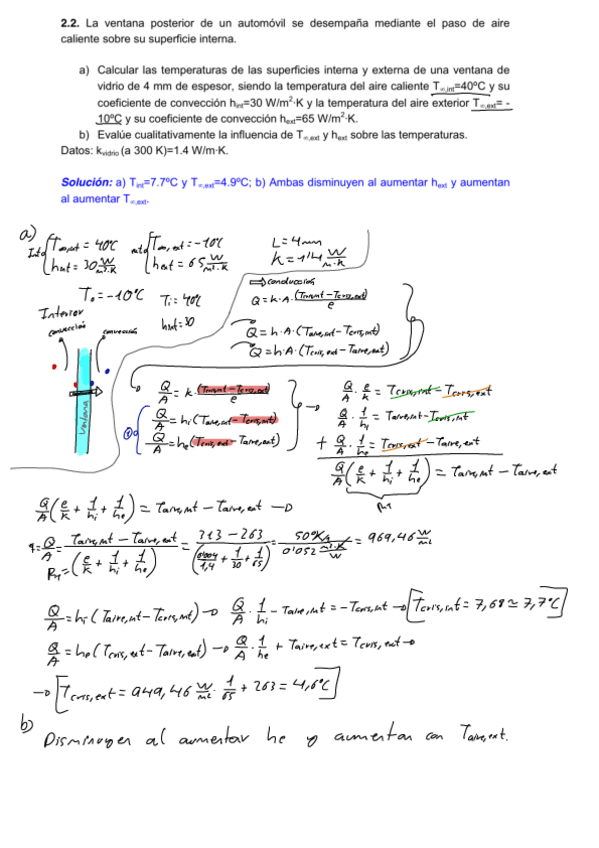 2.2. La ventana posterior de un automóvil se desempaña mediante el paso de aire
caliente sobre su superficie interna.
a) Calcular las temperaturas de las superficies interna y externa de una ventana de
vidrio de 4 mm de espesor, siendo la temperatura del aire caliente T∞,int=40ºC y su
coeficiente de convección hint=30 W/m²·K y la temperatura del aire exterior T∞,ext= -
10ºC y su coeficiente de convección hext=65 W/m²·K.
b) Evalúe cualitativamente la influencia de T∞,ext y hext sobre las temperaturas.
Datos: kvidrio (a 300 K)=1.4 W/m·K.
Solución: a) Tint=7.7ºC y T∞,ext=4.9ºC; b) Ambas disminuyen al aumentar hext y aumentan
al aumentar T∞,ext.
a)
T∞,int = 40ºC T∞,ext = -10ºC L = 4mm
hint = 30 W/m²·K hext = 65 W/m²·K K = 1'4 W/m·K
T₀ = -10ºC Ti = 40ºC
hint = 30
⇒ conducción
Q = K·A·(Tcris,int - Tcris,ext)/e
Interior
convección convección
Q = h·A·(Taire,int - Tcris,int)
Q = h·A·(Tcris,ext - Taire,ext)
ventana
Q/A = K·(Tcris,int - Tcris,ext)/e
Q/A = hi(Taire,int - Tcris,int)
Q/A = he(Tcris,ext - Taire,ext)
Q/A · e/K = Tcris,int - Tcris,ext
Q/A · 1/hi = Taire,int - Tcris,int
+ Q/A · 1/he = Tcris,ext - Taire,ext
Q/A (e/K + 1/hi + 1/he) = Taire,int - Taire,ext
RT
Q/A (e/K + 1/hi + 1/he) = Taire,int - Taire,ext →
q = Q/A = (Taire,int - Taire,ext)/(e/K + 1/hi + 1/he) = (313 - 263)/(0'004/1,4 + 1/30 + 1/65) = 50ºK/(0'052 m²·K/W) = 969,46 W/m²
RT =
Q/A = hi(Taire,int - Tcris,int) → Q/A · 1/hi - Taire,int = -Tcris,int → Tcris,int = 7,68 ≃ 7,7ºC
Q/A = he(Tcris,ext - Taire,ext) → Q/A · 1/he + Taire,ext = Tcris,ext →
→ Tcris,ext = 949,46 W/m² · 1/65 + 263 = 4,6ºC
b)
Disminuyen al aumentar he y aumentan con Taire,ext.